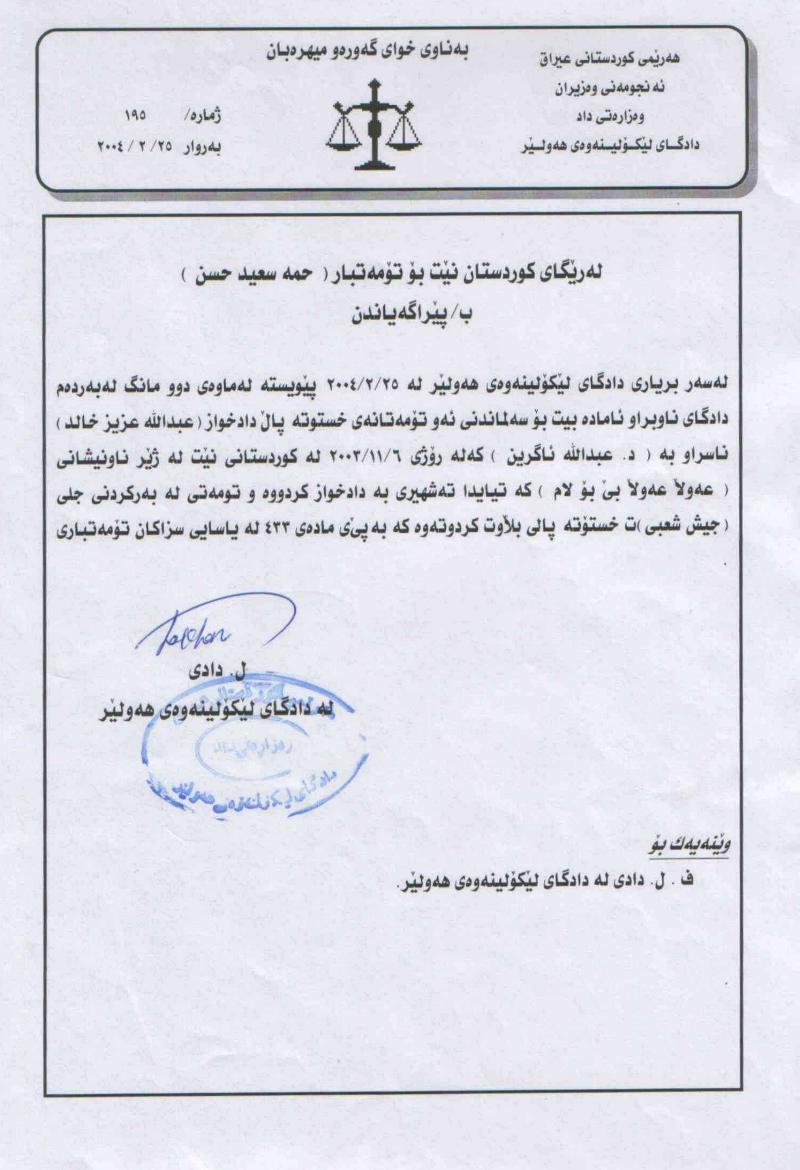 بەناوی خوای گەورەو میهرەبان
هەرێمی کوردستانی عیراق
ئەنجومەنی وەزیران
وەزارەتی داد
دادگای لێکۆلینەوەی هەولێر
ژمارە/ ١٩٥
بەروار ٢٥/ ٢ / ٢٠٠٤
لەرێگای کوردستان نێت بۆ تۆمەتبار ( حمه سعید حسن )
ب/ پێراگەیاندن
لەسەر بریاری دادگای لێکۆلینەوەی هەولێر لە ٢٠٠٤/٢/٢٥ پێویستە لەماوەی دوو مانگ لەبەردەم
دادگای ناوبراو ئامادە بیت بۆ سەلماندنی ئەو تۆمەتانەی خستوتە پاڵ دادخواز ( عبدالله عزیز خالد )
ناسراو بە ( د. عبدالله ئاگرین ) کەلە رۆژی ٢٠٠٣/١١/٦ لە کوردستانی نێت لە ژێر ناونیشانی
( عەولاً عەولاً بێ بۆ لام ) کە تیایدا تەشهیری بە دادخواز کردووە و تومەتی لە بەرکردنی جلی
(جیش شعبی)ت خستۆتە پالی بلأوت کردوتەوە کە بەپێی مادەی ٤٣٣ لە یاسایی سزاکان تۆمەتباری
ل. دادی
لە دادگای لێکۆلینەوەی هەولێر
وەزارەتی داد
دادگای لێکۆلینەوەی هەولێر
وێنەیەك بۆ
ف . ل. دادی لە دادگای لێکۆلینەوەی هەولێر.